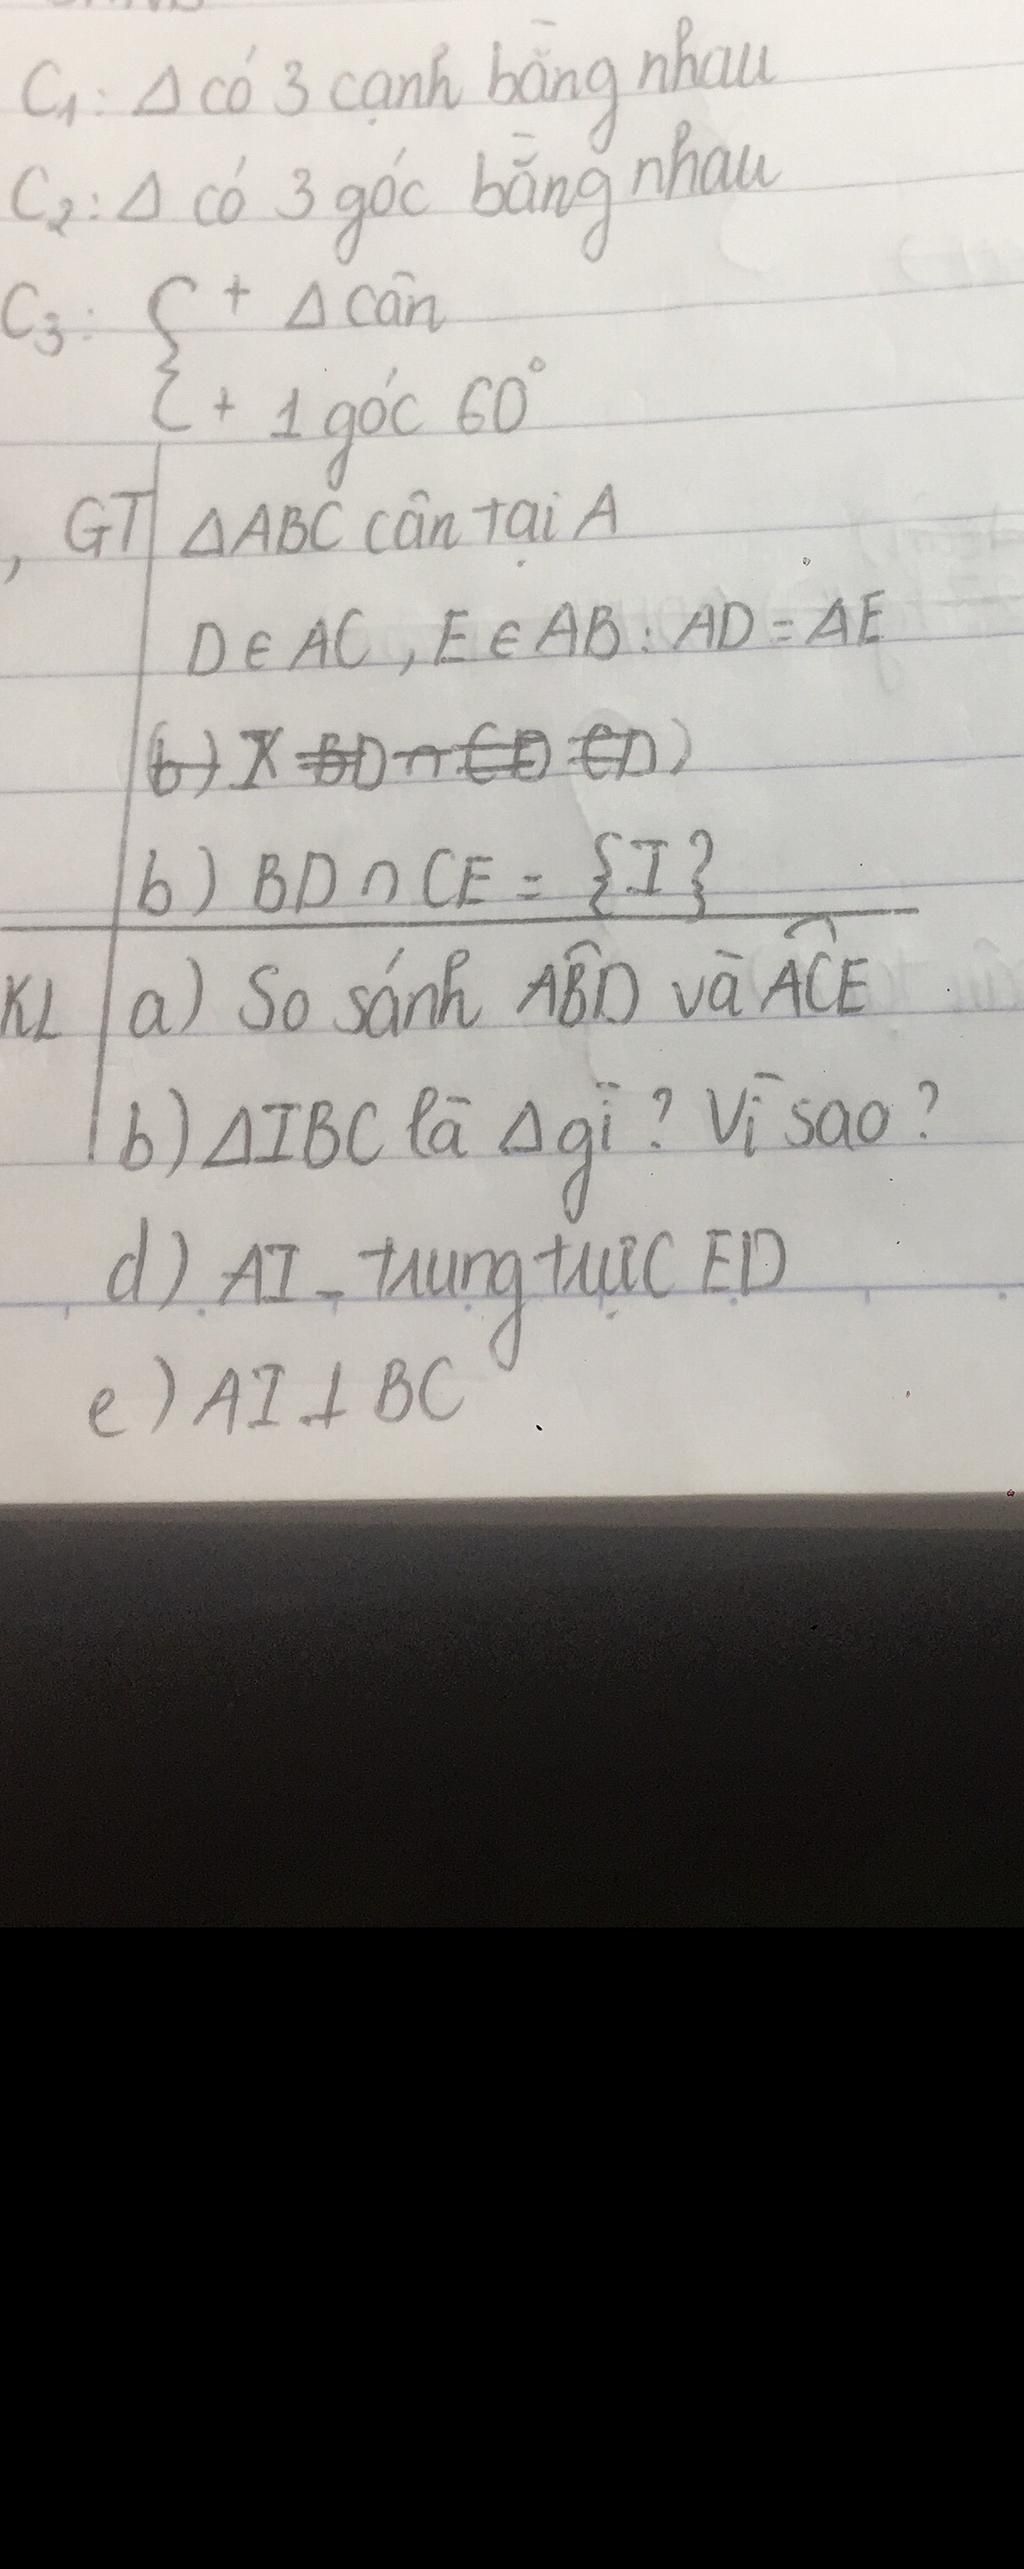 C₁: Δ có 3 cạnh bằng nhau
C₂: Δ có 3 góc bằng nhau
C₃: { + Δ cân
+ 1 góc 60°
, GT | ΔABC cân tại A
D ∈ AC, E ∈ AB : AD = AE
b) BD ∩ CE = {I}
KL | a) So sánh ABD và ACE
b) ΔIBC là Δ gì? Vì sao?
d) AI - trung trực ED
e) AI ⊥ BC